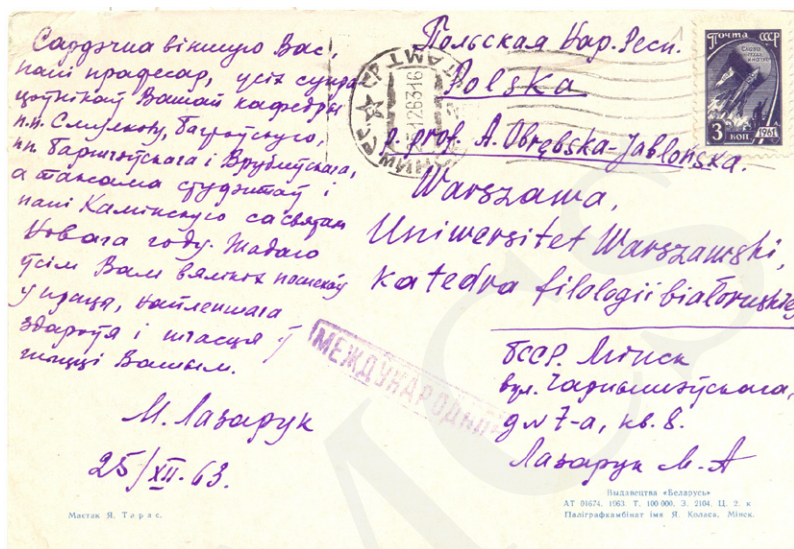 Сардэчна віншую Вас,
пані прафесар, усіх супра-
цоўнікаў Вашай кафедры
п.п. Смулкову,
пп. Баршчэўскага і Врублеўскага,
а таксама студэнтаў і
пані Камінскую са святам
Новага году. Жадаю
ўсім Вам вялікіх поспехаў
у працы, найлепшага
здароўя і шчасця ў
жыцці Вашым.
М. Лазарук
25/XII. 63.
Польская Нар. Респ.
Polska
p. prof. A. Obrębska-Jabłońska.
Warszawa,
Uniwersitet Warszawski,
Katedra filologii białoruskiej
БССР. Мінск
вул. Чарнышэўскага,
д № 7-а, кв. 8.
Лазарук М. А
Почта СССР
3 коп
1961
МЕЖДУНАРОДНОЕ
Мастак Я. Тарас.
Выдавецтва «Беларусь»
АТ 01674. 1963. Т. 100 000. З. 2104. Ц. 2. к
Паліграфкамбінат імя Я. Коласа, Мінск.